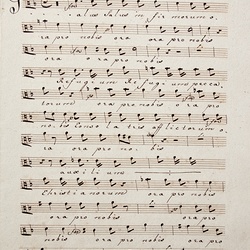 alus Salus in fir morum o.
ra pro nobis ora pro nobis
ora pro nobis ora pro nobis
Refugium Refugium pecca,
torum ora pro nobis ora pro
no. bis Conso la trix afflictorum o.
ra ora pro no. bis
auxili um
Christianorum ora pro nobis
ora pro nobis ora pro
nobis ora pro nobis